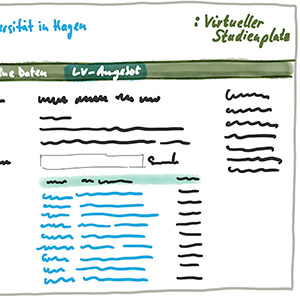 ersität in Hagen
: Virtueller
Studienplatz
ne Daten
LV-Angebot